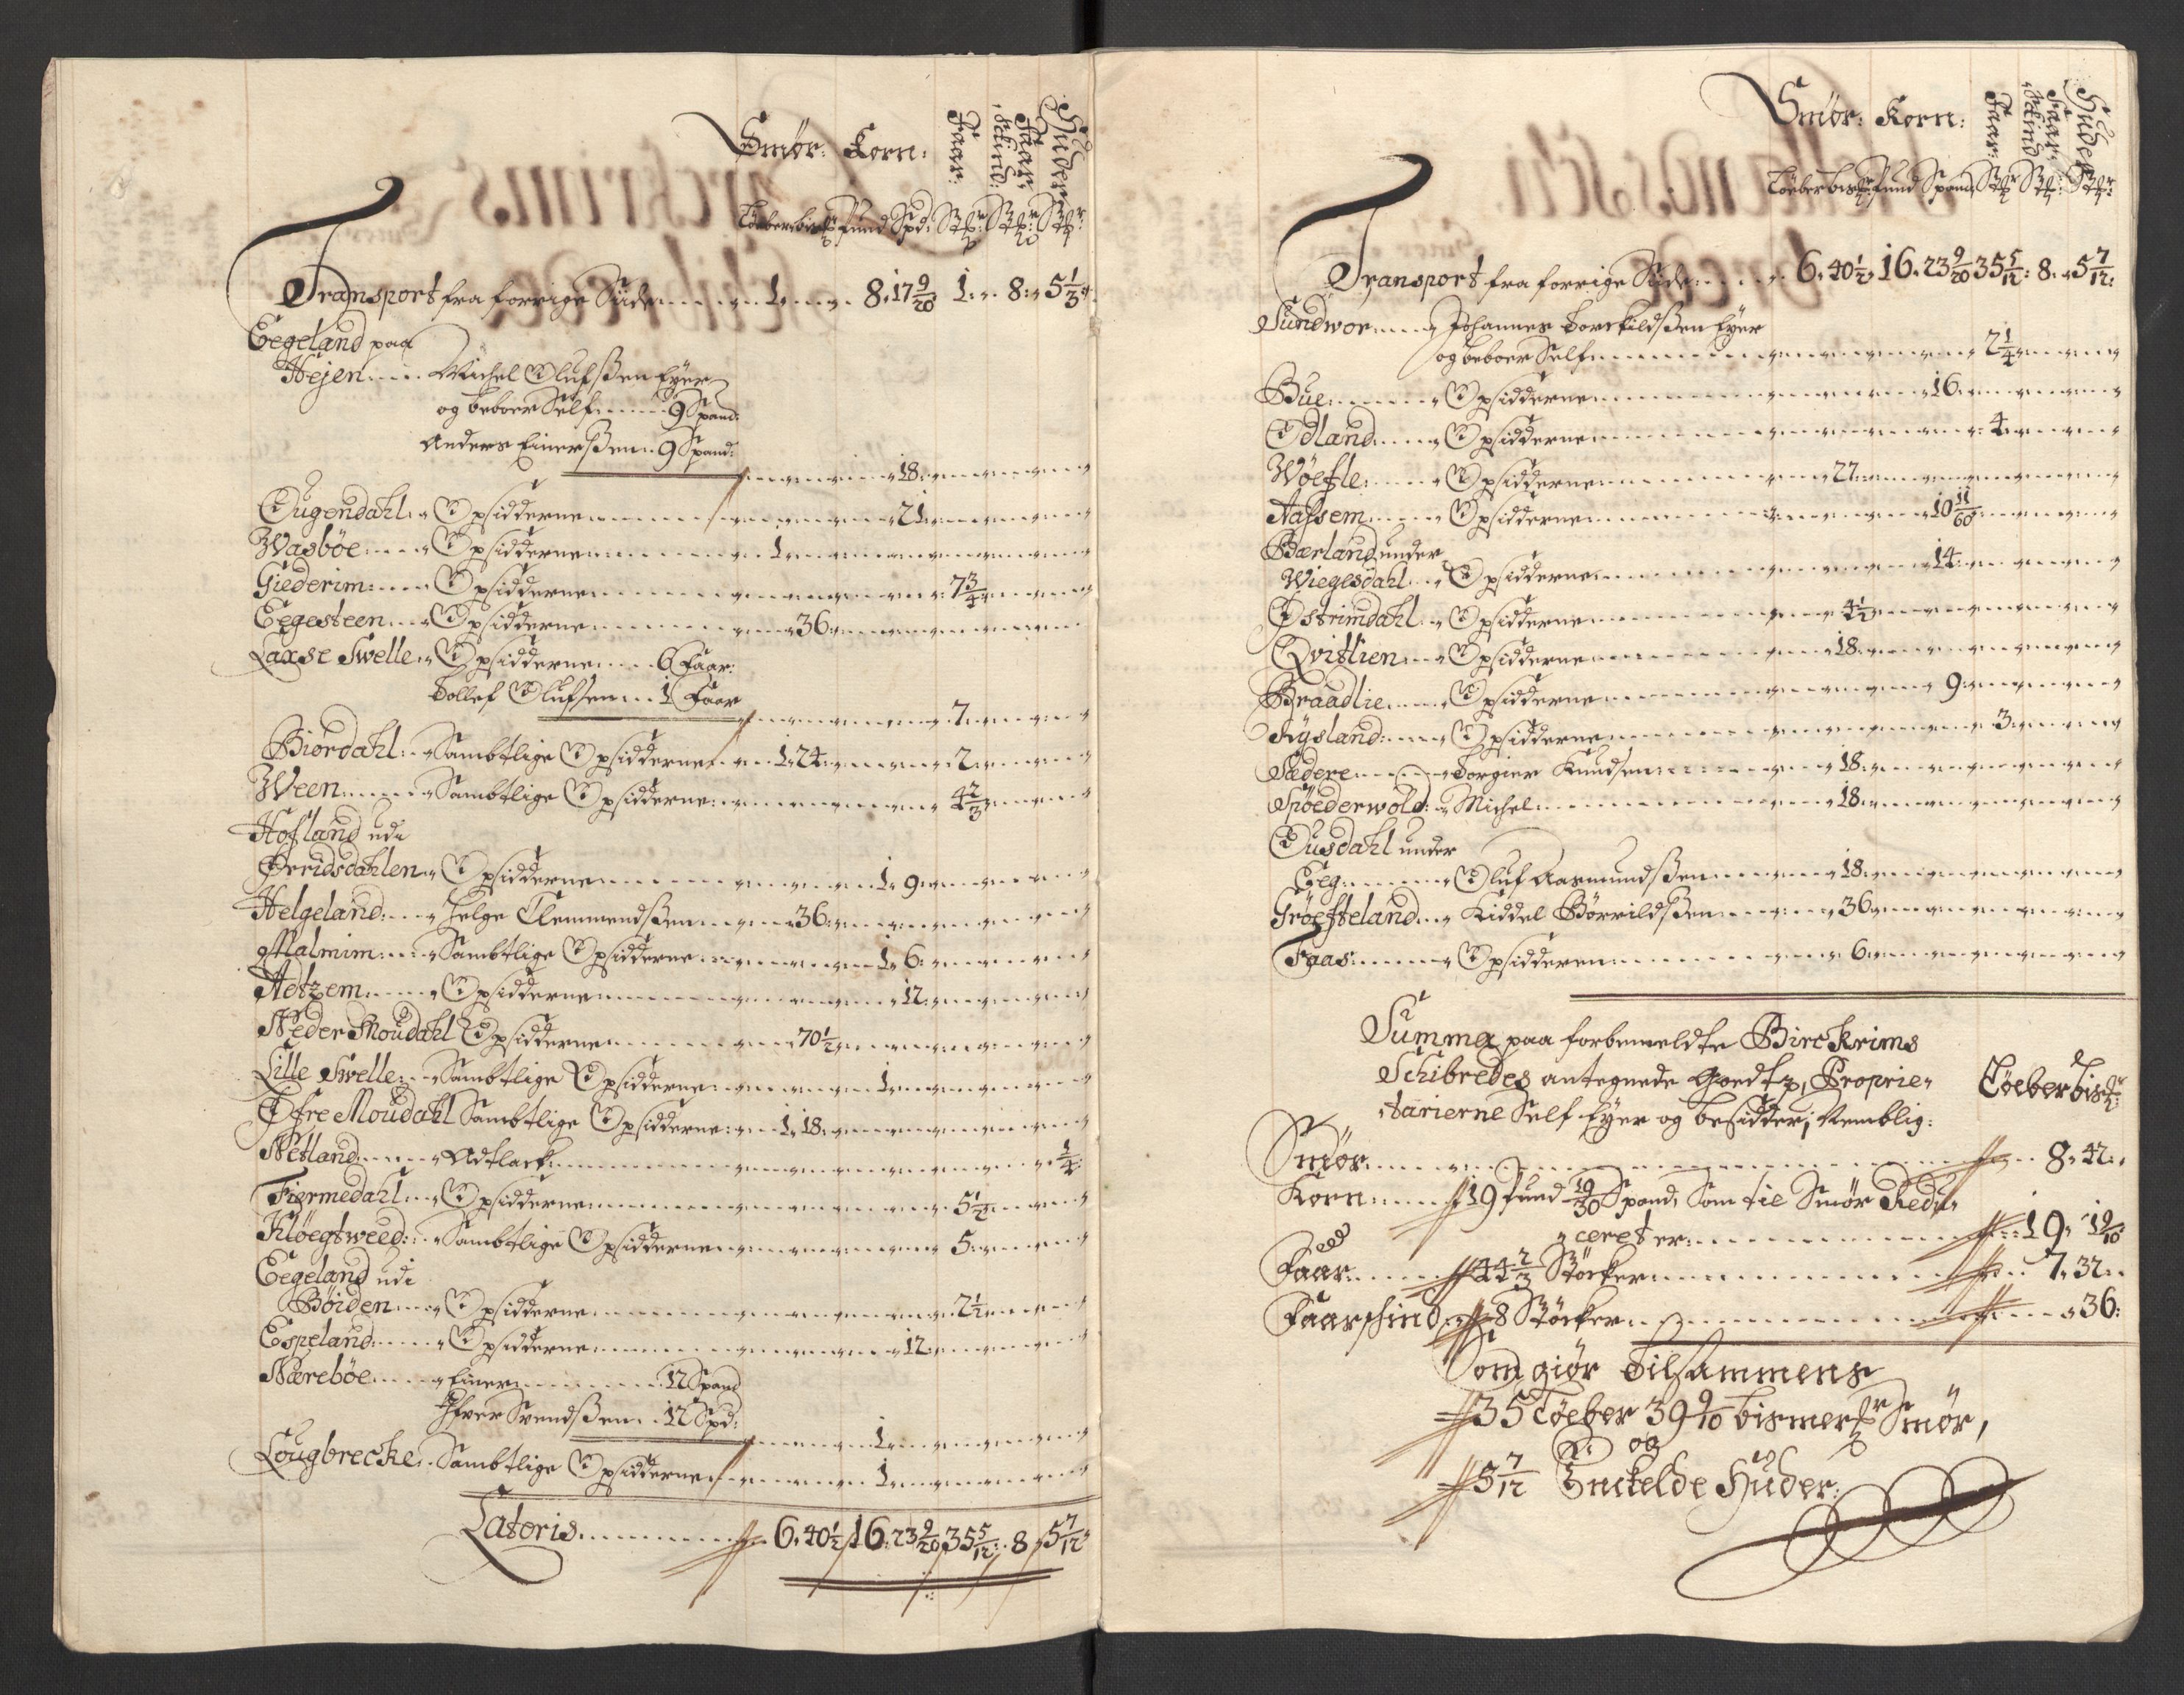 Smör: Korn: Faar: Faar-skind: Huder
Löeber bis℔ Pund Spd: Støcher Støcher Støcher
Transport fra forrige Siide 1 . 8. 17 9/20 1. 8: 5 1/3
Eegeland paa
Hejen Michel Olufsßen Eyer
og beboer Self 9 Spand:
Anders Einersßen 9 Spand:
18:
Ougendahl Opsidderne 21
Wasböe Opsidderne 1
Giederim: Opsidderne 7 3/4
Eegesteen Opsidderne 36
Laxse Swelle Opsidderne 6 Faar:
Tollef Olufsen 1 Faar
7
Biördahl: Sambtlige Opsidderne 1. 24 2
Ween Sambtlige Opsidderne 4 2/3
Hofland udi
Ørridsdahlen Opsidderne 1. 9
Helgeland: Helge Clemmendsßen 36
Malmim: Sambtlige Opsidderne 1. 6
Adtzem Opsidderne 12
Neder Moudahl Opsidderne 70 1/2
Lille Swelle: Sambtlige Opsidderne 1
Öfre Moudahl Sambtlige Opsidderne: 1. 18
Netland Adtlack 1/4
Fiermedahl Opsidderne 5 1/2
Klöegtweed: Sambtlige Opsidderne 5
Eegeland udi
Böiden Opsidderne 2 1/2
Espeland Opsidderne 12
Næreböe Einer 12 Spand
Ifver Svendsßen 12 Spd:
1
Lougbrecke Sambtlige Opsidderne 1
Lateris 6. 40 1/2 16. 23 9/20 35 5/12 8 5 7/12
Smör: Korn: Faar: Faar-skind Huder
Löeber bis℔ Pund Spand Støcher Støcher Støcher
Transport fra forrige Siide 6. 40 1/2 16. 23 9/20 35 5/12: 8. 5 7/12:
Sundwor Johannes Torckildsßen Eyer
og beboer Self 2 1/4
Bue Opsidderne 16
Ödland Opsidderne 4
Wöefle Opsidderne 27
Aassem Opsidderne 10 11/60
Bærland under
Wiegesdahl Opsidderne 14
Østrimdahl Opsidderne 4 1/2
Qvitlien Opsidderne 18
Braadlie Opsidderne 9
Rysland: Opsidderne 3
Sædere Torgier Knudsen 18
Spöederwold: Michel 18
Ousdahl under
Eeg Oluf Aasmundsßen 18
Gröefteland Kiddel Börrildsßen 36
Faas Opsidderen 6
Summa paa forbemeldte Birckrims
Schibredes antegnede Goedtz, Proprie-
tarierne Self Eyer og besidder; Nemblig: Löeber bis℔:
Smör 8. 42
Korn: 19 Pund 19/30 Spand, Som til Smör Redu-
ceret er: 19. 1 9/10
Faar 44 2/3 Støcher 7. 32
Faarskind 8 Støcher 36:
Som giør Tilsammens
35 Löeber 39 9/10 bismer℔ Smör,
og
5 7/12 Enckelde Huder: